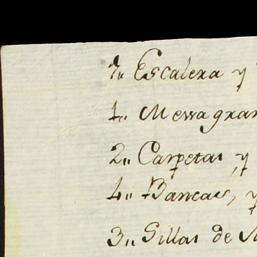 1,, Escalera y
1,, Messa gran
2,, Carpetas y
4,, Bancas, y
3,, Sillas de